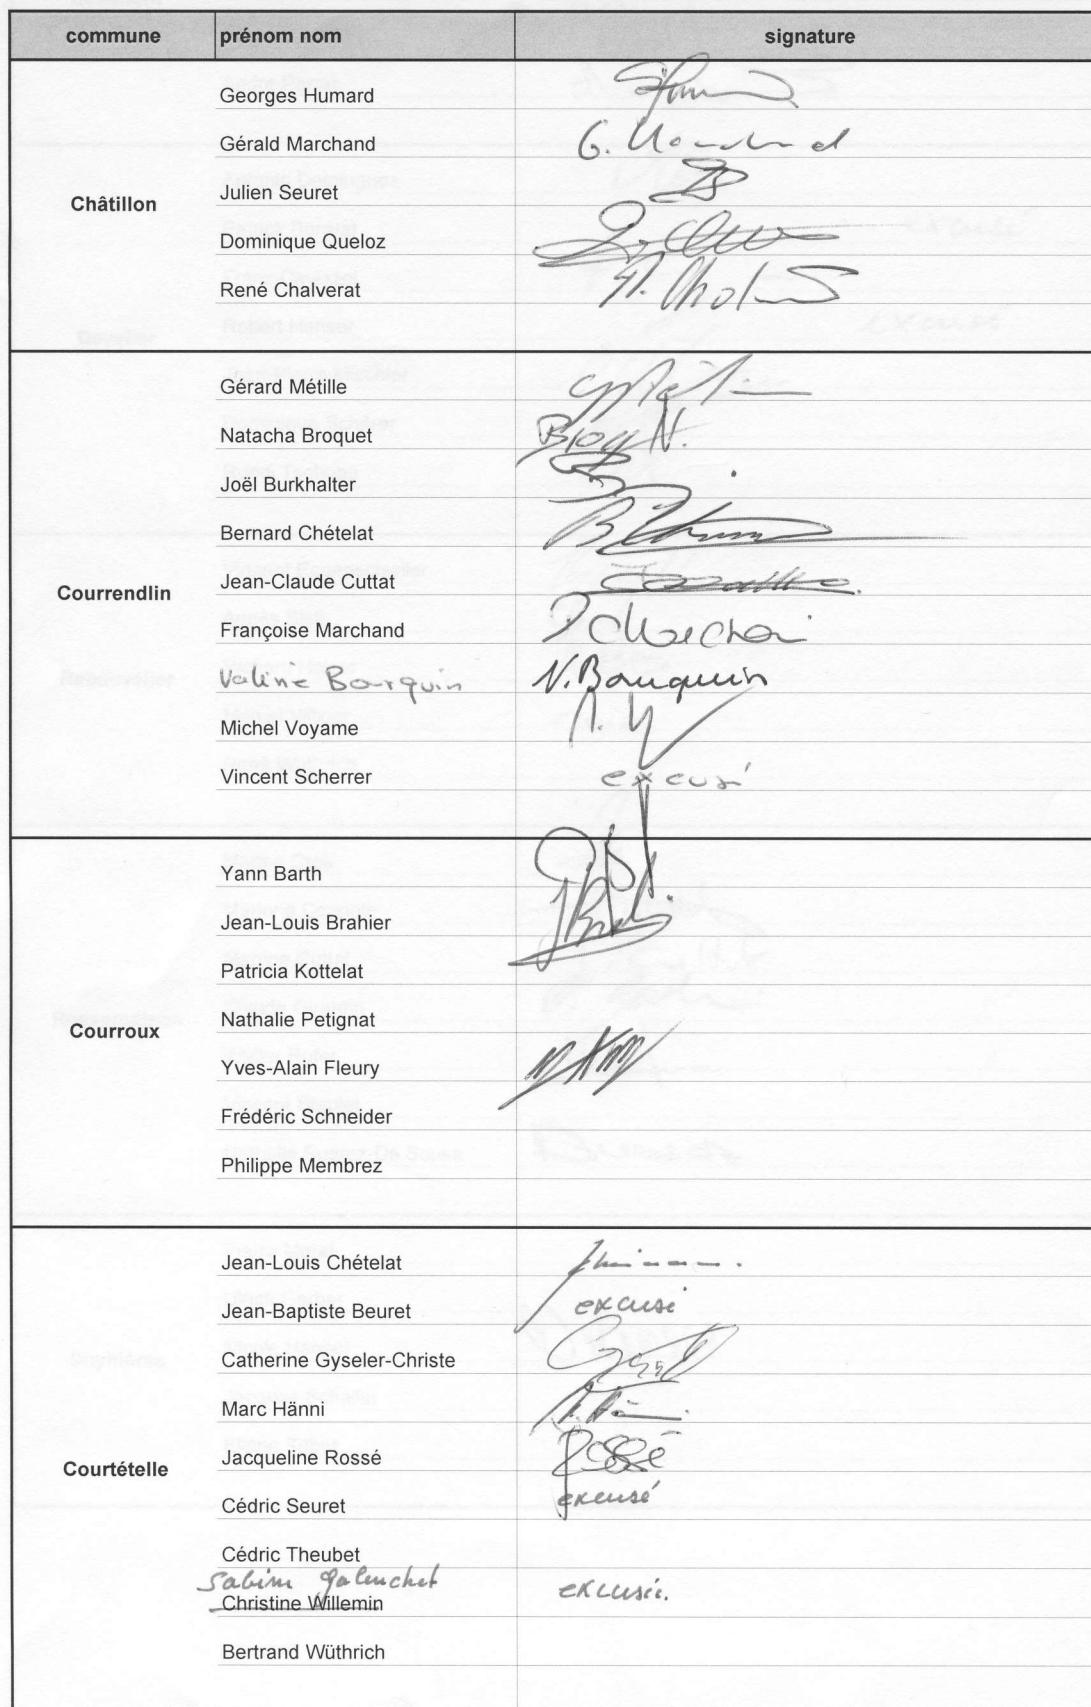 commune prénom nom signature
Châtillon
Georges Humard
Gérald Marchand G. Marchand
Julien Seuret
Dominique Queloz
René Chalverat
Courrendlin
Gérard Métille
Natacha Broquet Broq N.
Joël Burkhalter
Bernard Chételat
Jean-Claude Cuttat
Françoise Marchand
Valérie Bourquin V. Bourquin
Michel Voyame
Vincent Scherrer excusé
Courroux
Yann Barth
Jean-Louis Brahier
Patricia Kottelat
Nathalie Petignat
Yves-Alain Fleury
Frédéric Schneider
Philippe Membrez
Courtételle
Jean-Louis Chételat
Jean-Baptiste Beuret excusé
Catherine Gyseler-Christe
Marc Hänni
Jacqueline Rossé Rossé
Cédric Seuret excusé
Cédric Theubet
Christine Willemin excusée.
Bertrand Wüthrich